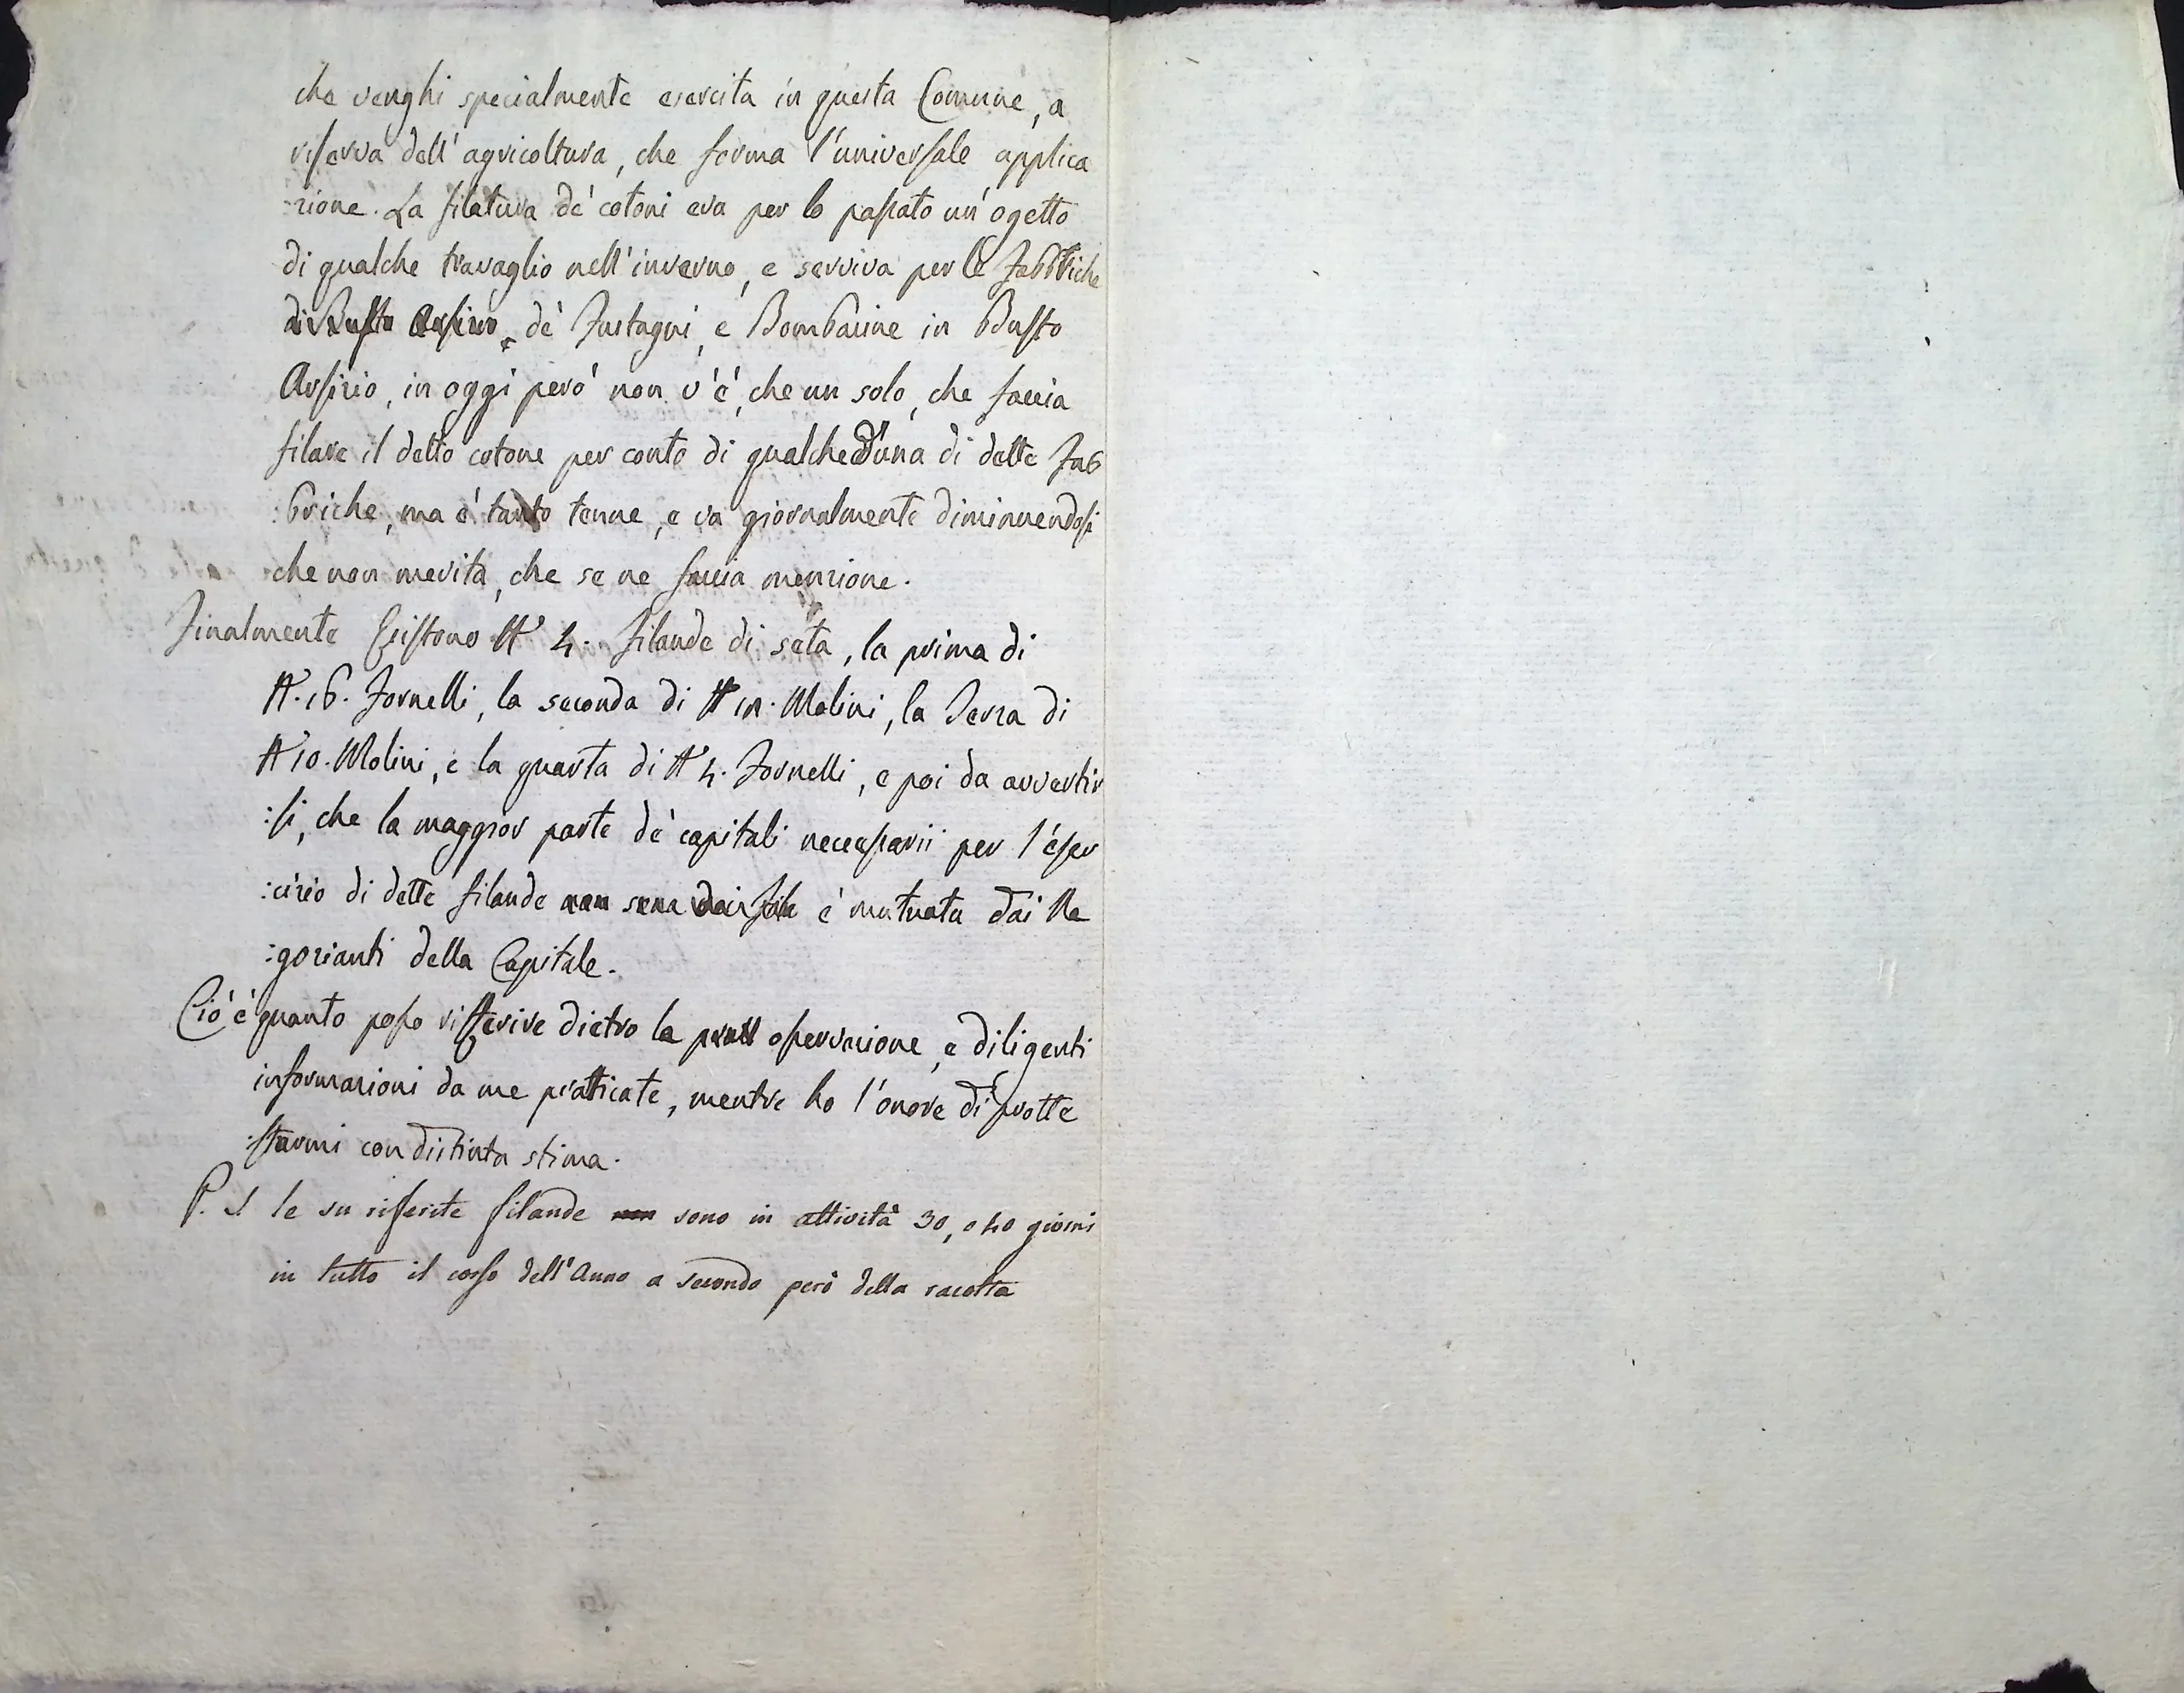 che venghi specialmente esercita in questa Comune, a
riserva dell'agricoltura, che forma l'universale applica
:zione. La filatura de' cotoni era per lo passato un'ogetto
di qualche travaglio nell'inverno, e serviva per le Fabbriche
di Busto Arsizio, de' Fustagni, e Bombacine in Busto
Arsizio, in oggi però non v'è, che un solo, che faccia
filare il detto cotone per conto di qualched'una di dette Fab
:briche, ma è tanto tenue, e va giornalmente diminuendosi
che non merita, che se ne faccia menzione.
Finalmente Esistono N° 4. filande di seta, la prima di
N°. 16. Fornelli, la seconda di N° Molini, la Terza di
N° 10. Molini, e la quarta di N° 4. Fornelli, e poi da avvertir
:si, che la maggior parte de' capitali necessarii per l'eser
:cizio di dette filande non sena è mutuata dai Ne
:gozianti della Capitale.
Ciò è quanto posso rifferire dietro la osservazione, e diligenti
informazioni da me pratticate, mentre ho l'onore di protte
:starmi con distinta stima.
P. S le su rifferite filande non sono in attività 30, o 40 giorni
in tutto il corso dell'Anno a secondo però della racolta